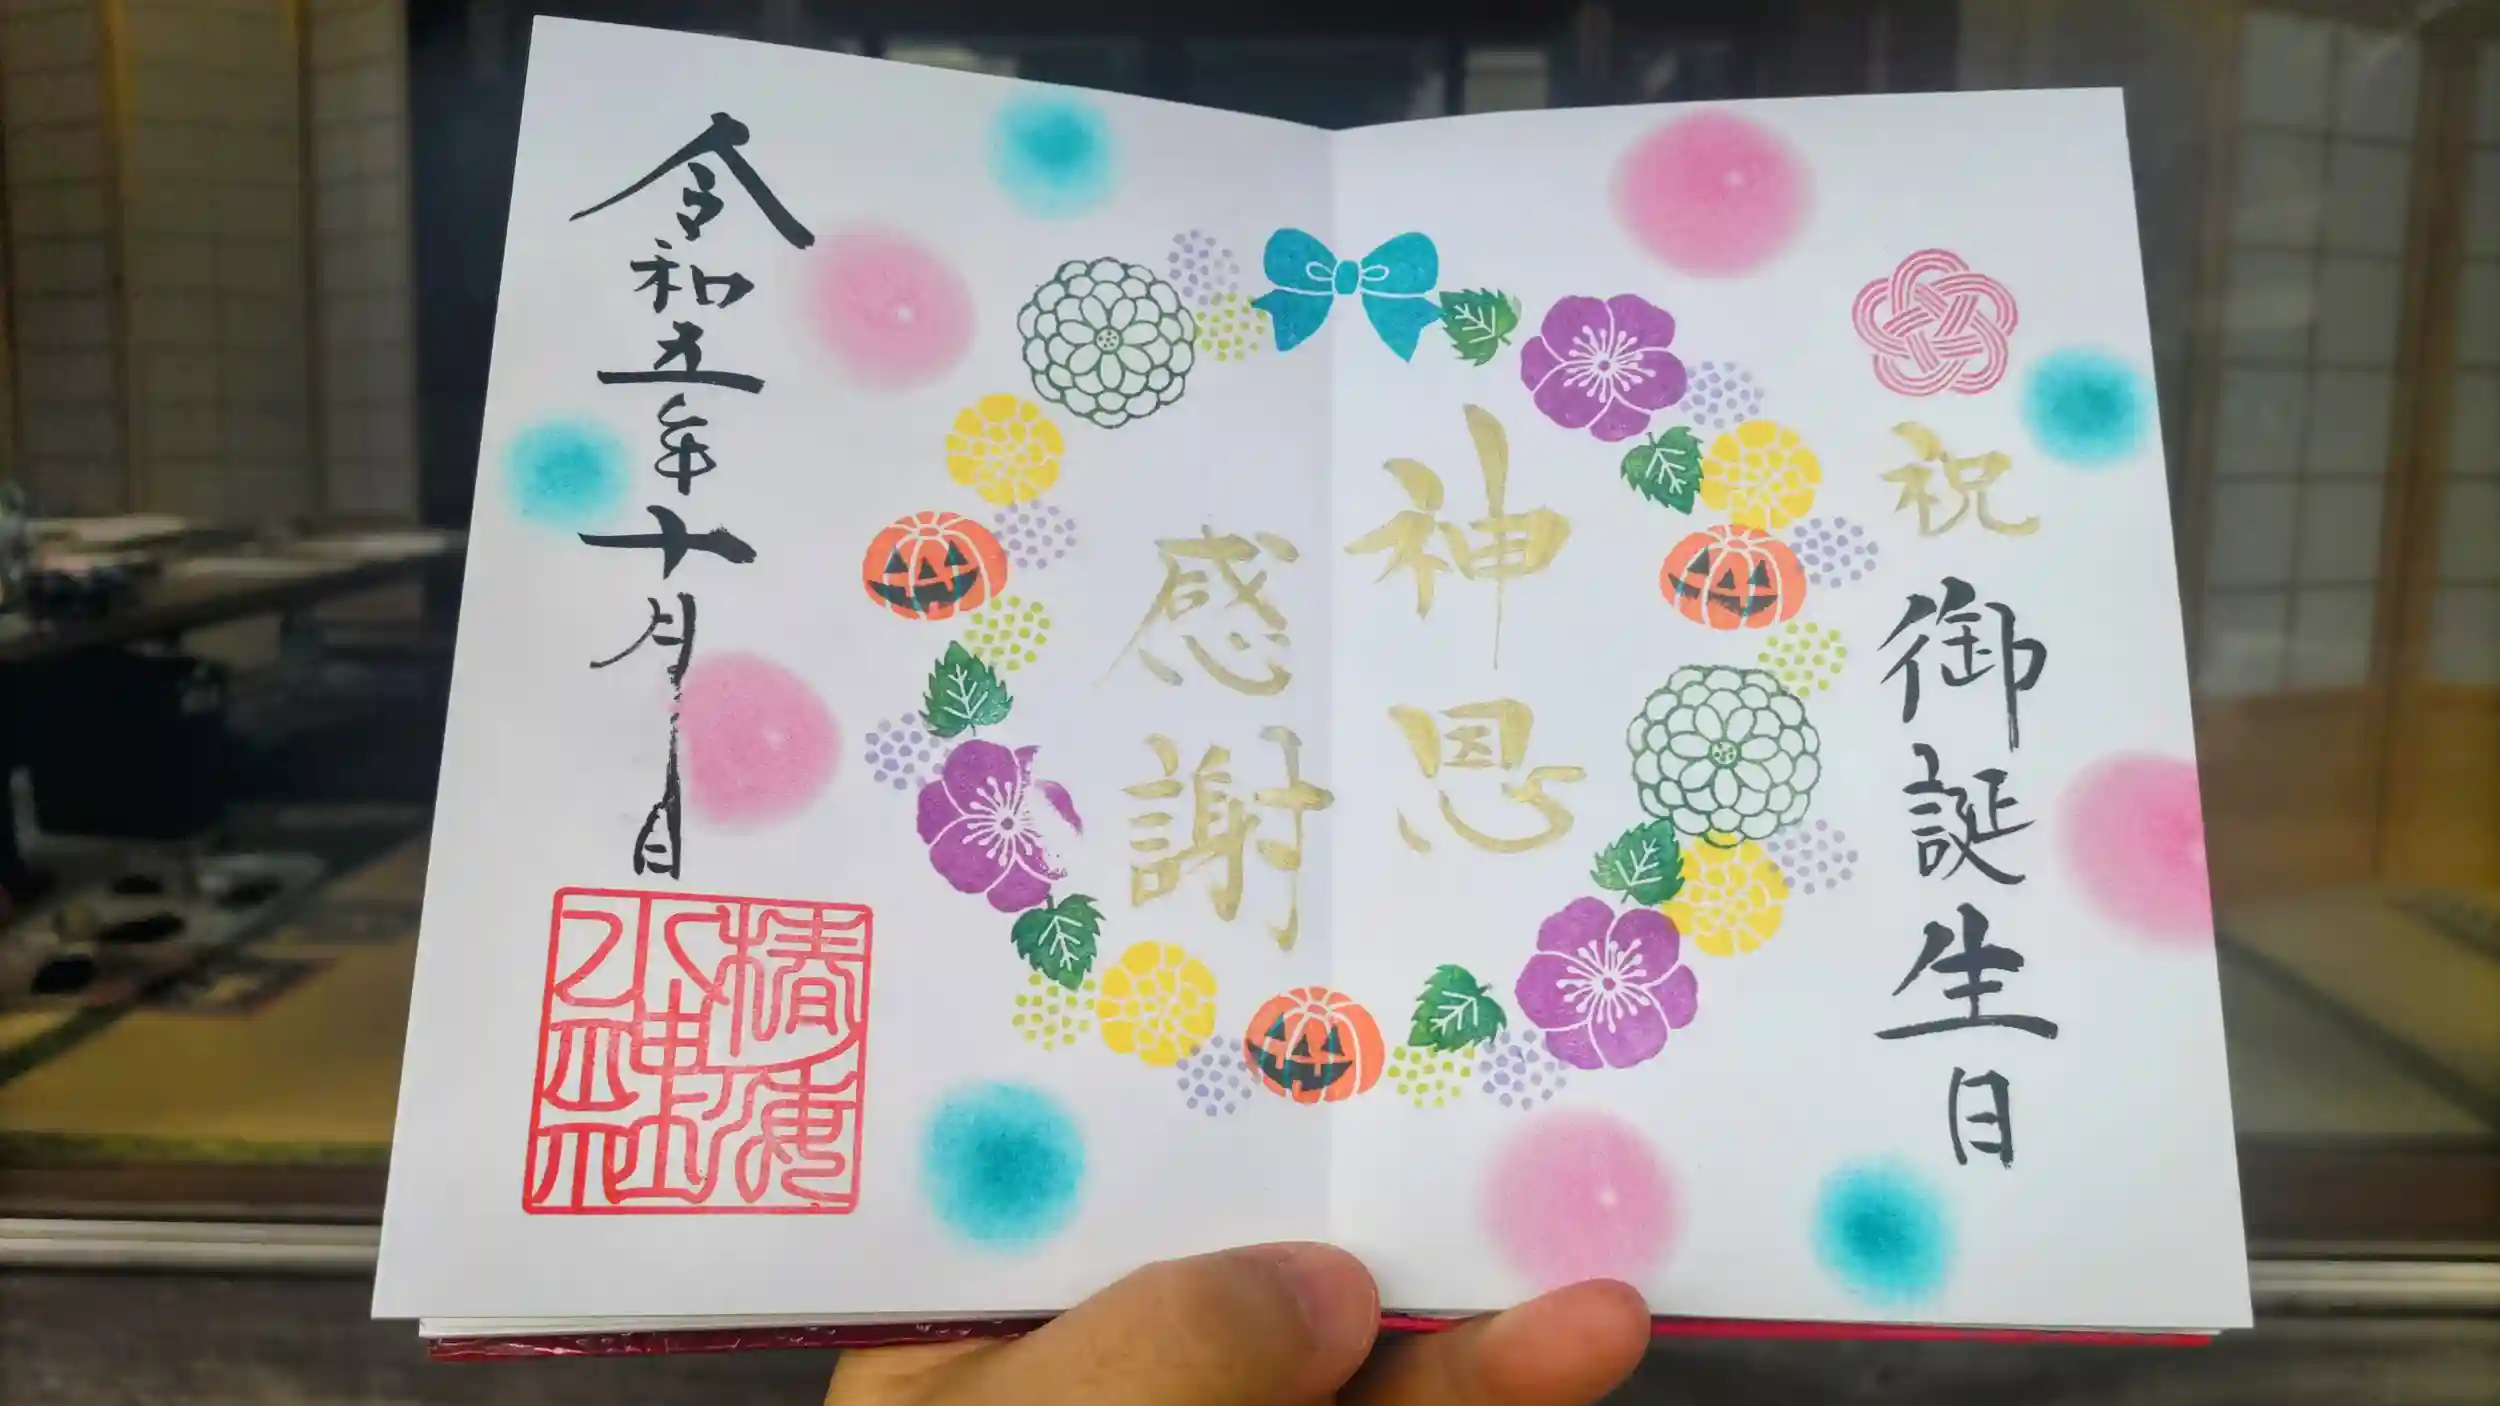 祝
御誕生日
神恩
感謝
令和五年十月一日
椿海
水神社